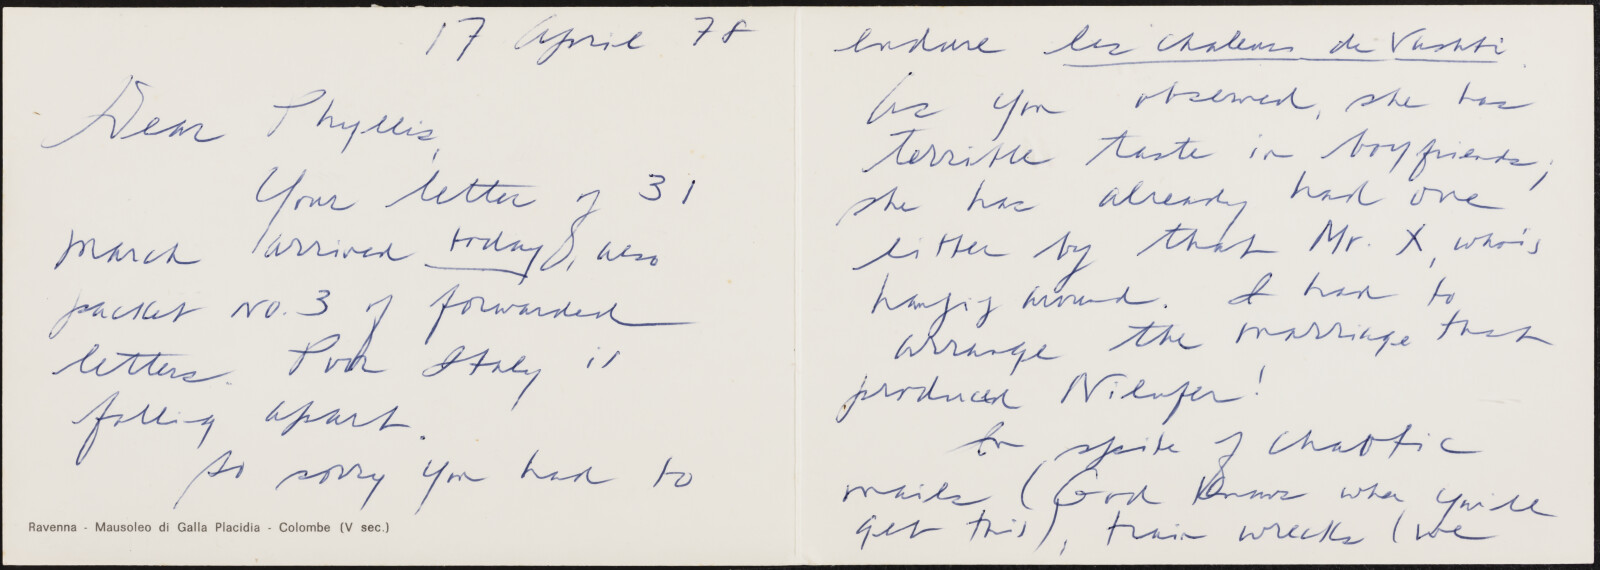 17 April 78
Dear Phyllis,
Your letter of 31
March arrived today, also
packet no. 3 of forwarded
letters. Poor Italy is
falling apart.
So sorry you had to
Ravenna - Mausoleo di Galla Placidia - Colombe (V sec.)
endure les chaleurs de Vashti.
As you observed, she has
terrible taste in boyfriends;
she has already had one
litter by that Mr. X, who's
hanging around. I had to
arrange the marriage that
produced Nilufer!
In spite of chaotic
mails (God knows when you'll
get this), train wrecks (we